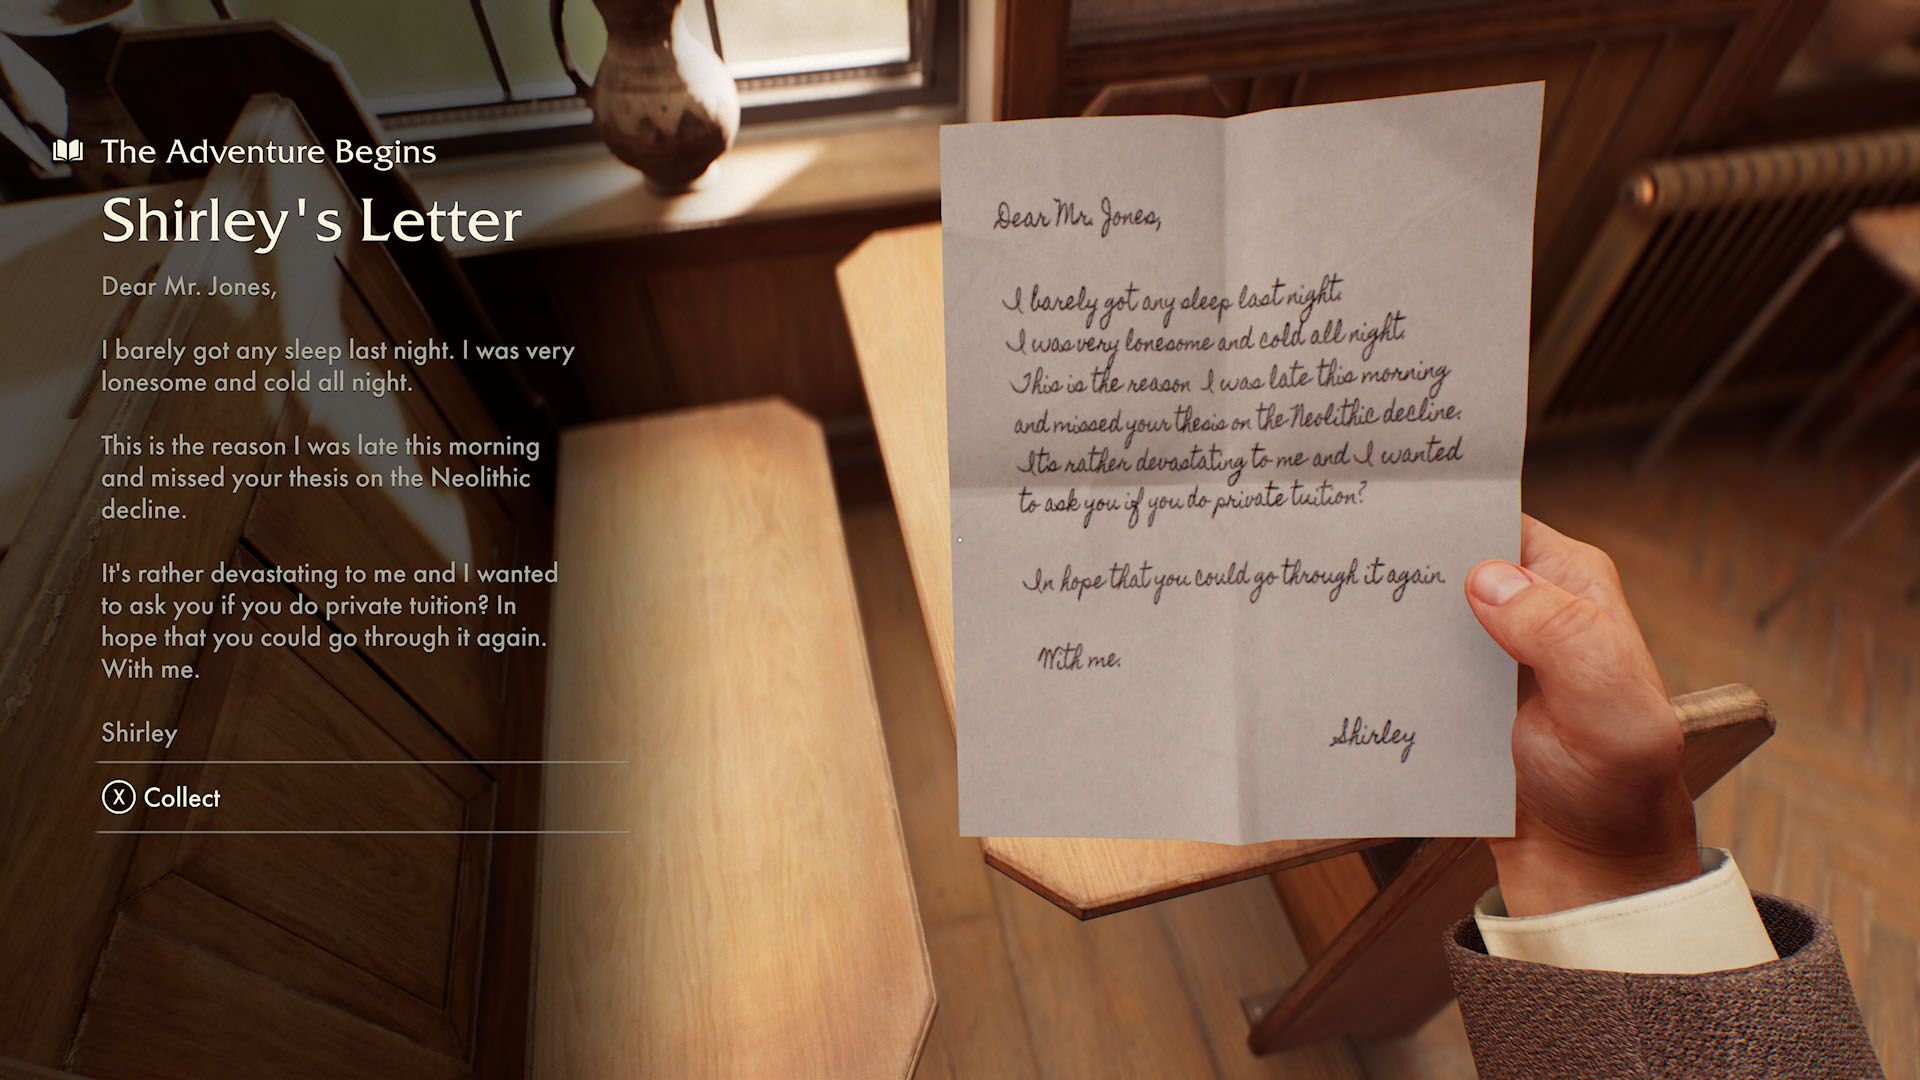 The Adventure Begins
Shirley's Letter
Dear Mr. Jones,
I barely got any sleep last night. I was very
lonesome and cold all night.
This is the reason I was late this morning
and missed your thesis on the Neolithic
decline.
It's rather devastating to me and I wanted
to ask you if you do private tuition? In
hope that you could go through it again.
With me.
Shirley
X Collect
Dear Mr. Jones,
I barely got any sleep last night.
I was very lonesome and cold all night.
This is the reason I was late this morning
and missed your thesis on the Neolithic decline.
It's rather devastating to me and I wanted
to ask you if you do private tuition?
In hope that you could go through it again.
With me.
Shirley